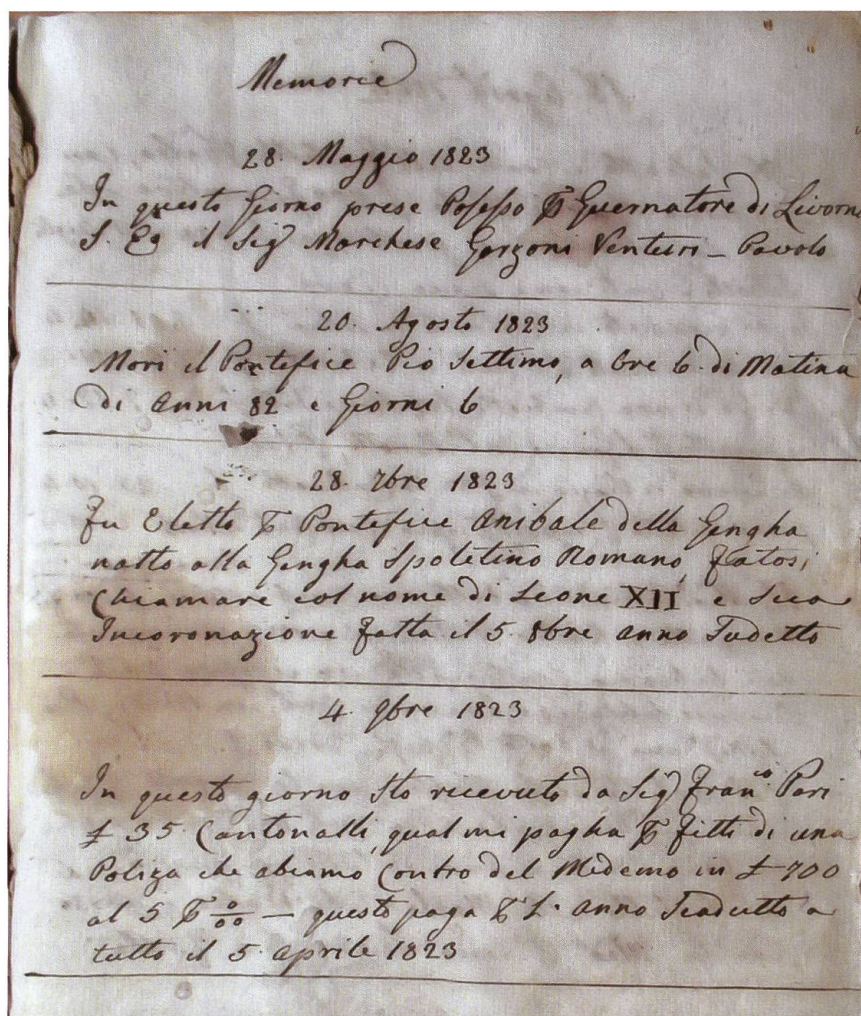 Memorie
28. Maggio 1823
In questo Giorno prese Posesso Guernatore di Livorn
S. Eg il Sig Marchese Garzoni Venturi – Pavolo
20. Agosto 1823
Mori il Pontefice Pio Settimo, a Ore 6 di Matina
di anni 82 e Giorni 6
28. 7bre 1823
Fu Eletto Pontefice Anibale della Gengha
natto alla Gengha Spoletino Romano, fatosi
Chiamare col nome di Leone XII e Sua
Incoronazione fatta il 5. 8bre anno Sudetto
4. 9bre 1823
In questo giorno Ho ricevuto da Sig Fran.co Pari
£ 35 Contonatti, qual mi pagha fitti di una
Poliza che abiamo Contro del Medemo in £ 700
al 5 – questo paga L' anno Scadutto a
tutto il 5. Aprile 1823